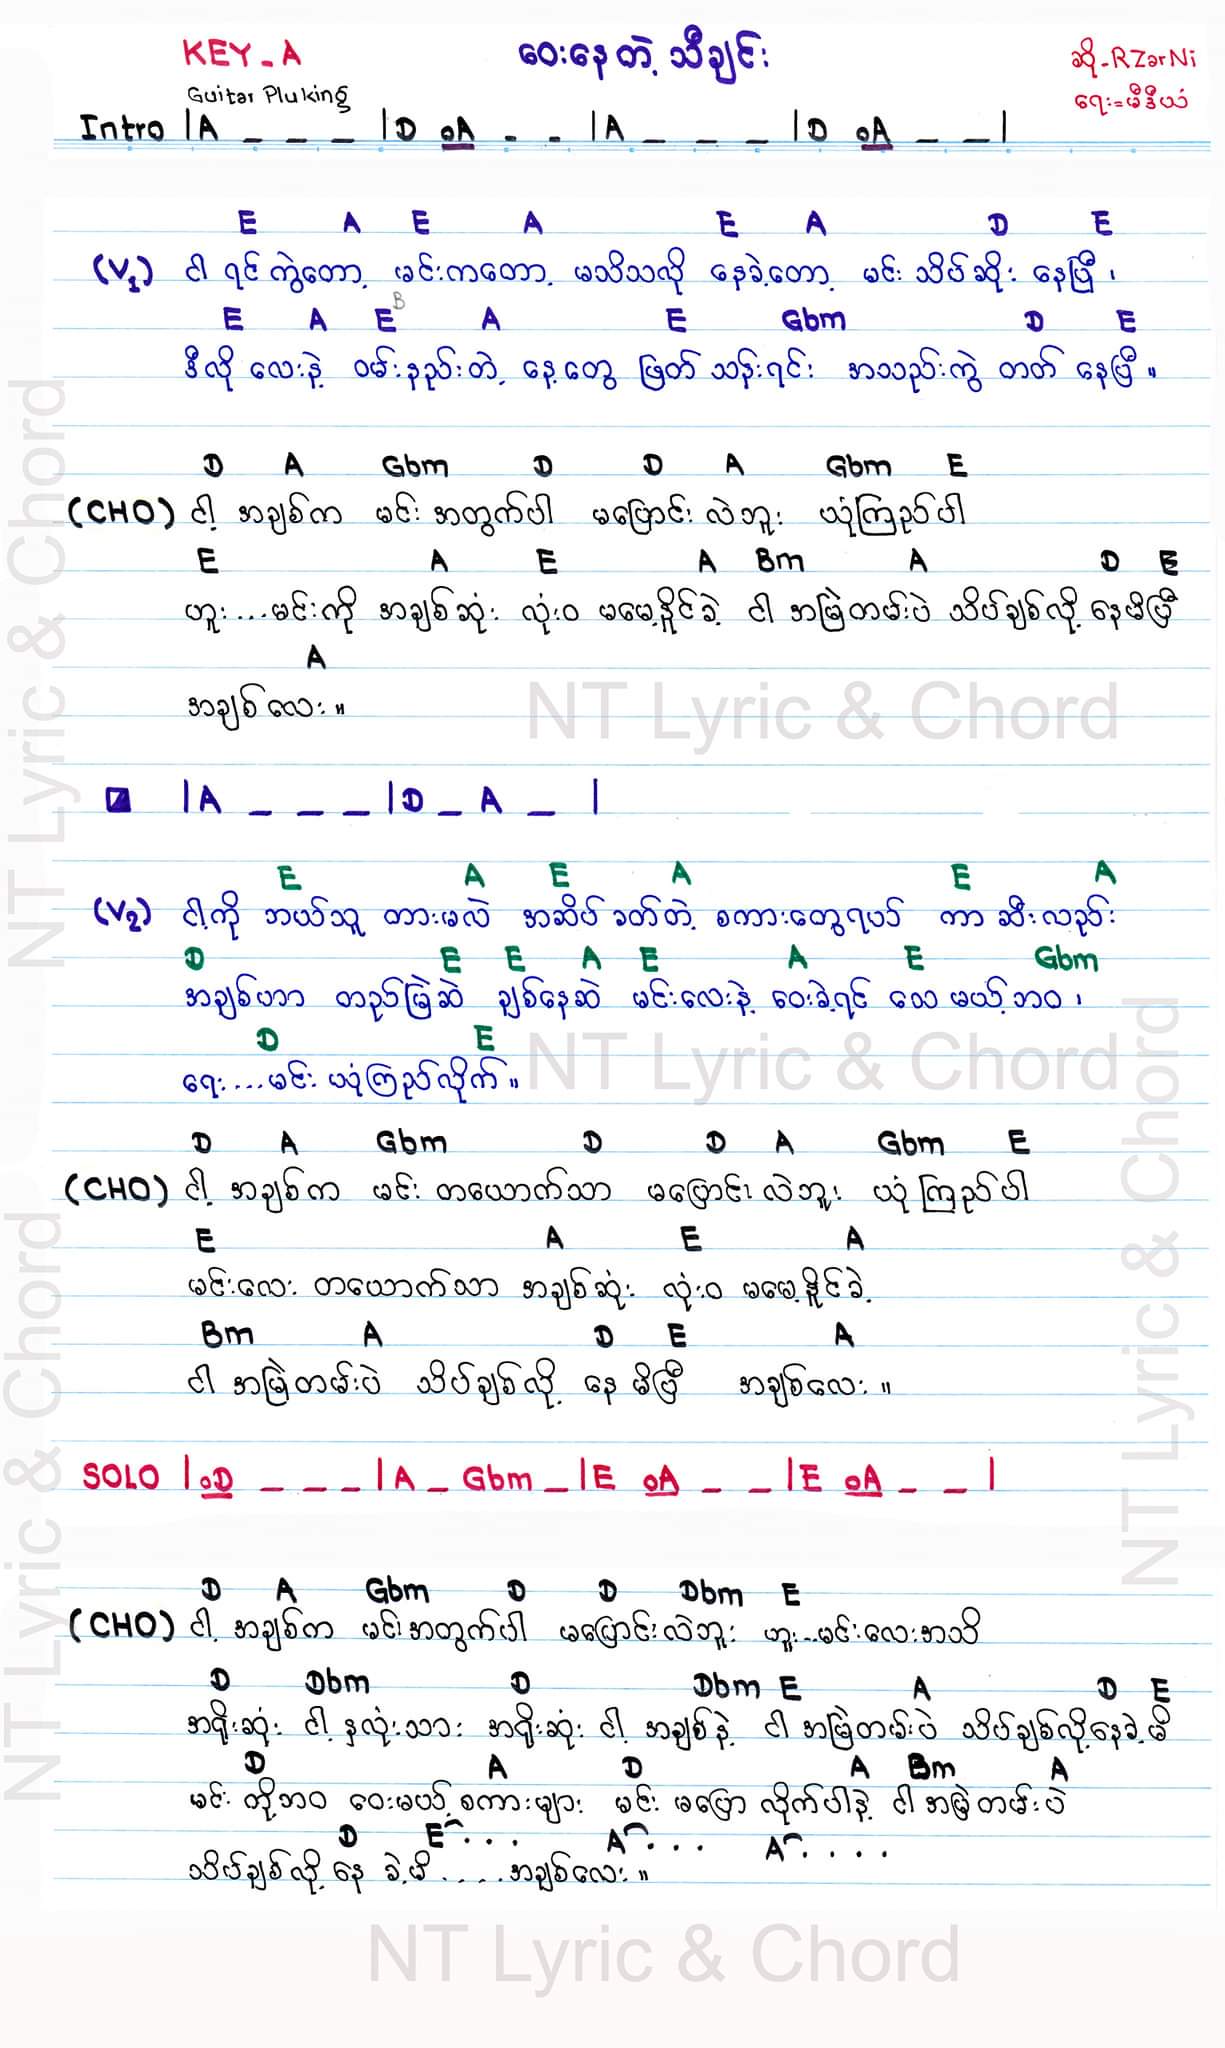 KEY - A
ဝေးနေတဲ့ သီချင်း
ဆို - RZarNi
Guitar Pluking
ရေး = မီဒီယံ
Intro |A _ _ _ |D oA - - |A _ _ _ |D oA _ _ |
E A E A E A D E
(V1) ငါ ရင်ကွဲတော့ မင်းကတော့ မသိသလို နေခဲ့တော့ မင်း သိပ်ဆိုး နေပြီ ၊
E A E B A E Gbm D E
ဒီလို လေးနဲ့ ဝမ်းနည်းတဲ့ နေ့တွေ ဖြတ်သန်းရင်း အသည်းကွဲ တတ် နေပြီ ။
D A Gbm D D A Gbm E
(CHO) ငါ့ အချစ်က မင်း အတွက်ပါ မပြောင်းလဲဘူး ယုံကြည်ပါ
E A E A Bm A D E
ဟူး...မင်းကို အချစ်ဆုံး လုံးဝ မမေ့နိုင်ခဲ့ ငါ အမြဲတမ်းပဲ သိပ်ချစ်လို့ နေမိပြီ
A
အချစ်လေး ။
NT Lyric & Chord
|A _ _ _ |D _ A _ |
E A E A E A
(V2) ငါ့ကို ဘယ်သူ တားမလဲ အဆိပ်ခတ်တဲ့ စကားတွေရယ် ကာဆီးလည်း
D E E A E A E Gbm
အချစ်ဟာ တည်မြဲဆဲ ချစ်နေဆဲ မင်းလေးနဲ့ ဝေးခဲ့ရင် သေမယ့်ဘဝ ၊
D E
ရေး...မင်း ယုံကြည်လိုက် ။
NT Lyric & Chord
D A Gbm D D A Gbm E
(CHO) ငါ့ အချစ်က မင်း တယောက်သာ မပြောင်းလဲဘူး ယုံကြည်ပါ
E A E A
မင်းလေး တယောက်သာ အချစ်ဆုံး လုံးဝ မမေ့နိုင်ခဲ့
Bm A D E A
ငါ အမြဲတမ်းပဲ သိပ်ချစ်လို့ နေမိပြီ အချစ်လေး ။
SOLO |oD _ _ _ |A _ Gbm _ |E oA _ _ |E oA _ _ |
D A Gbm D D Dbm E
(CHO) ငါ့ အချစ်က မင်းအတွက်ပါ မပြောင်းလဲဘူး ဟူး..မင်းလေးအသိ
D Dbm D Dbm E A D E
အရိုးဆုံး ငါ့ နှလုံးသား အရိုးဆုံး ငါ့ အချစ်နဲ့ ငါ အမြဲတမ်းပဲ သိပ်ချစ်လို့နေခဲ့မိ
D A D A Bm A
မင်း ကို့ဘဝ ဝေးမယ့် စကားများ မင်း မပြောလိုက်ပါနဲ့ ငါ အမြဲတမ်းပဲ
D E... A... A....
သိပ်ချစ်လို့ နေ ခဲ့မိ .....အချစ်လေး ။
NT Lyric & Chord
NT Lyric & Chord
NT Lyric & Chord
NT Lyric & Chord